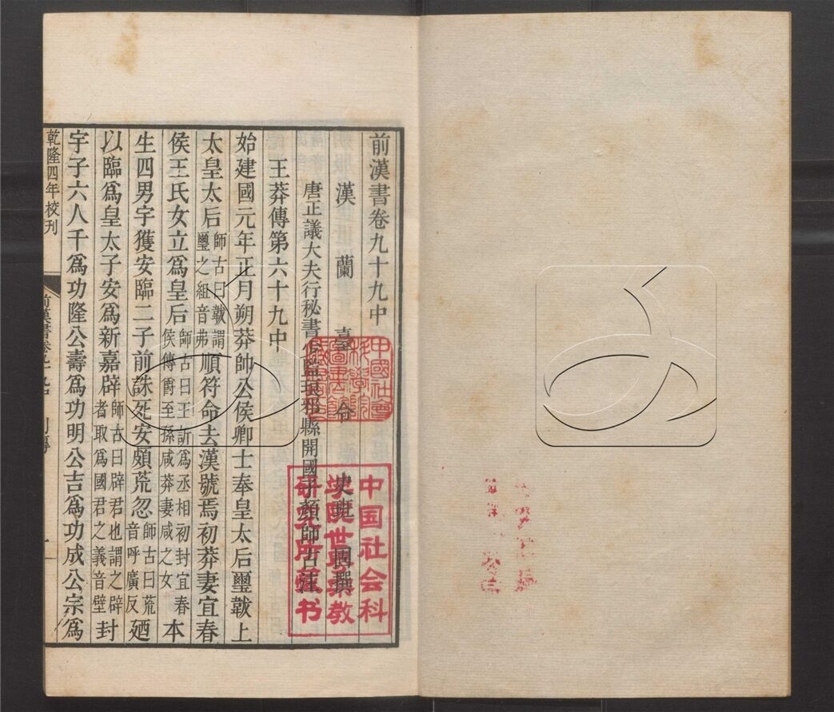 前漢書卷九十九中
漢蘭臺令史班固撰
唐正議大夫行秘書少監琅邪縣開國子顏師古注
王莽傳第六十九中
始建國元年正月朔莽帥公侯卿士奉皇太后璽韍上
太皇太后師古曰韍謂璽之組音弗順符命去漢號焉初莽妻宜春
侯王氏女立爲皇后師古曰王訢爲丞相初封宜春侯傳爵至孫咸莽妻咸之女本
生四男宇獲安臨二子前誅死安頗荒忽師古曰荒音呼廣反廼
以臨爲皇太子安爲新嘉辟師古曰辟君也謂之辟者取爲國君之義音壁封
宇子六人千爲功隆公壽爲功明公吉爲功成公宗爲
乾隆四年校刊
前漢書卷九十九中 列傳 一
中國社會科學院圖書館藏書
中国社会科学院世界宗教研究所藏书